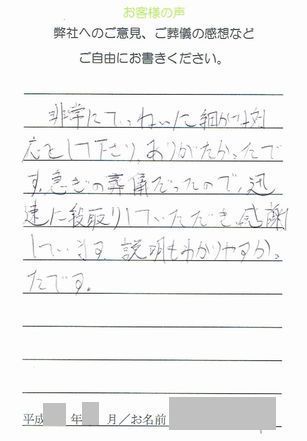 お客様の声
弊社へのご意見、ご葬儀の感想など
ご自由にお書きください。
非常にていねいに細かい対
応をして下さり、ありがたかったで
す。急ぎの葬儀だったので、迅
速に段取りしていただき、感謝
しています。説明もわかりやすかっ
たです。
平成 年 月/お名前